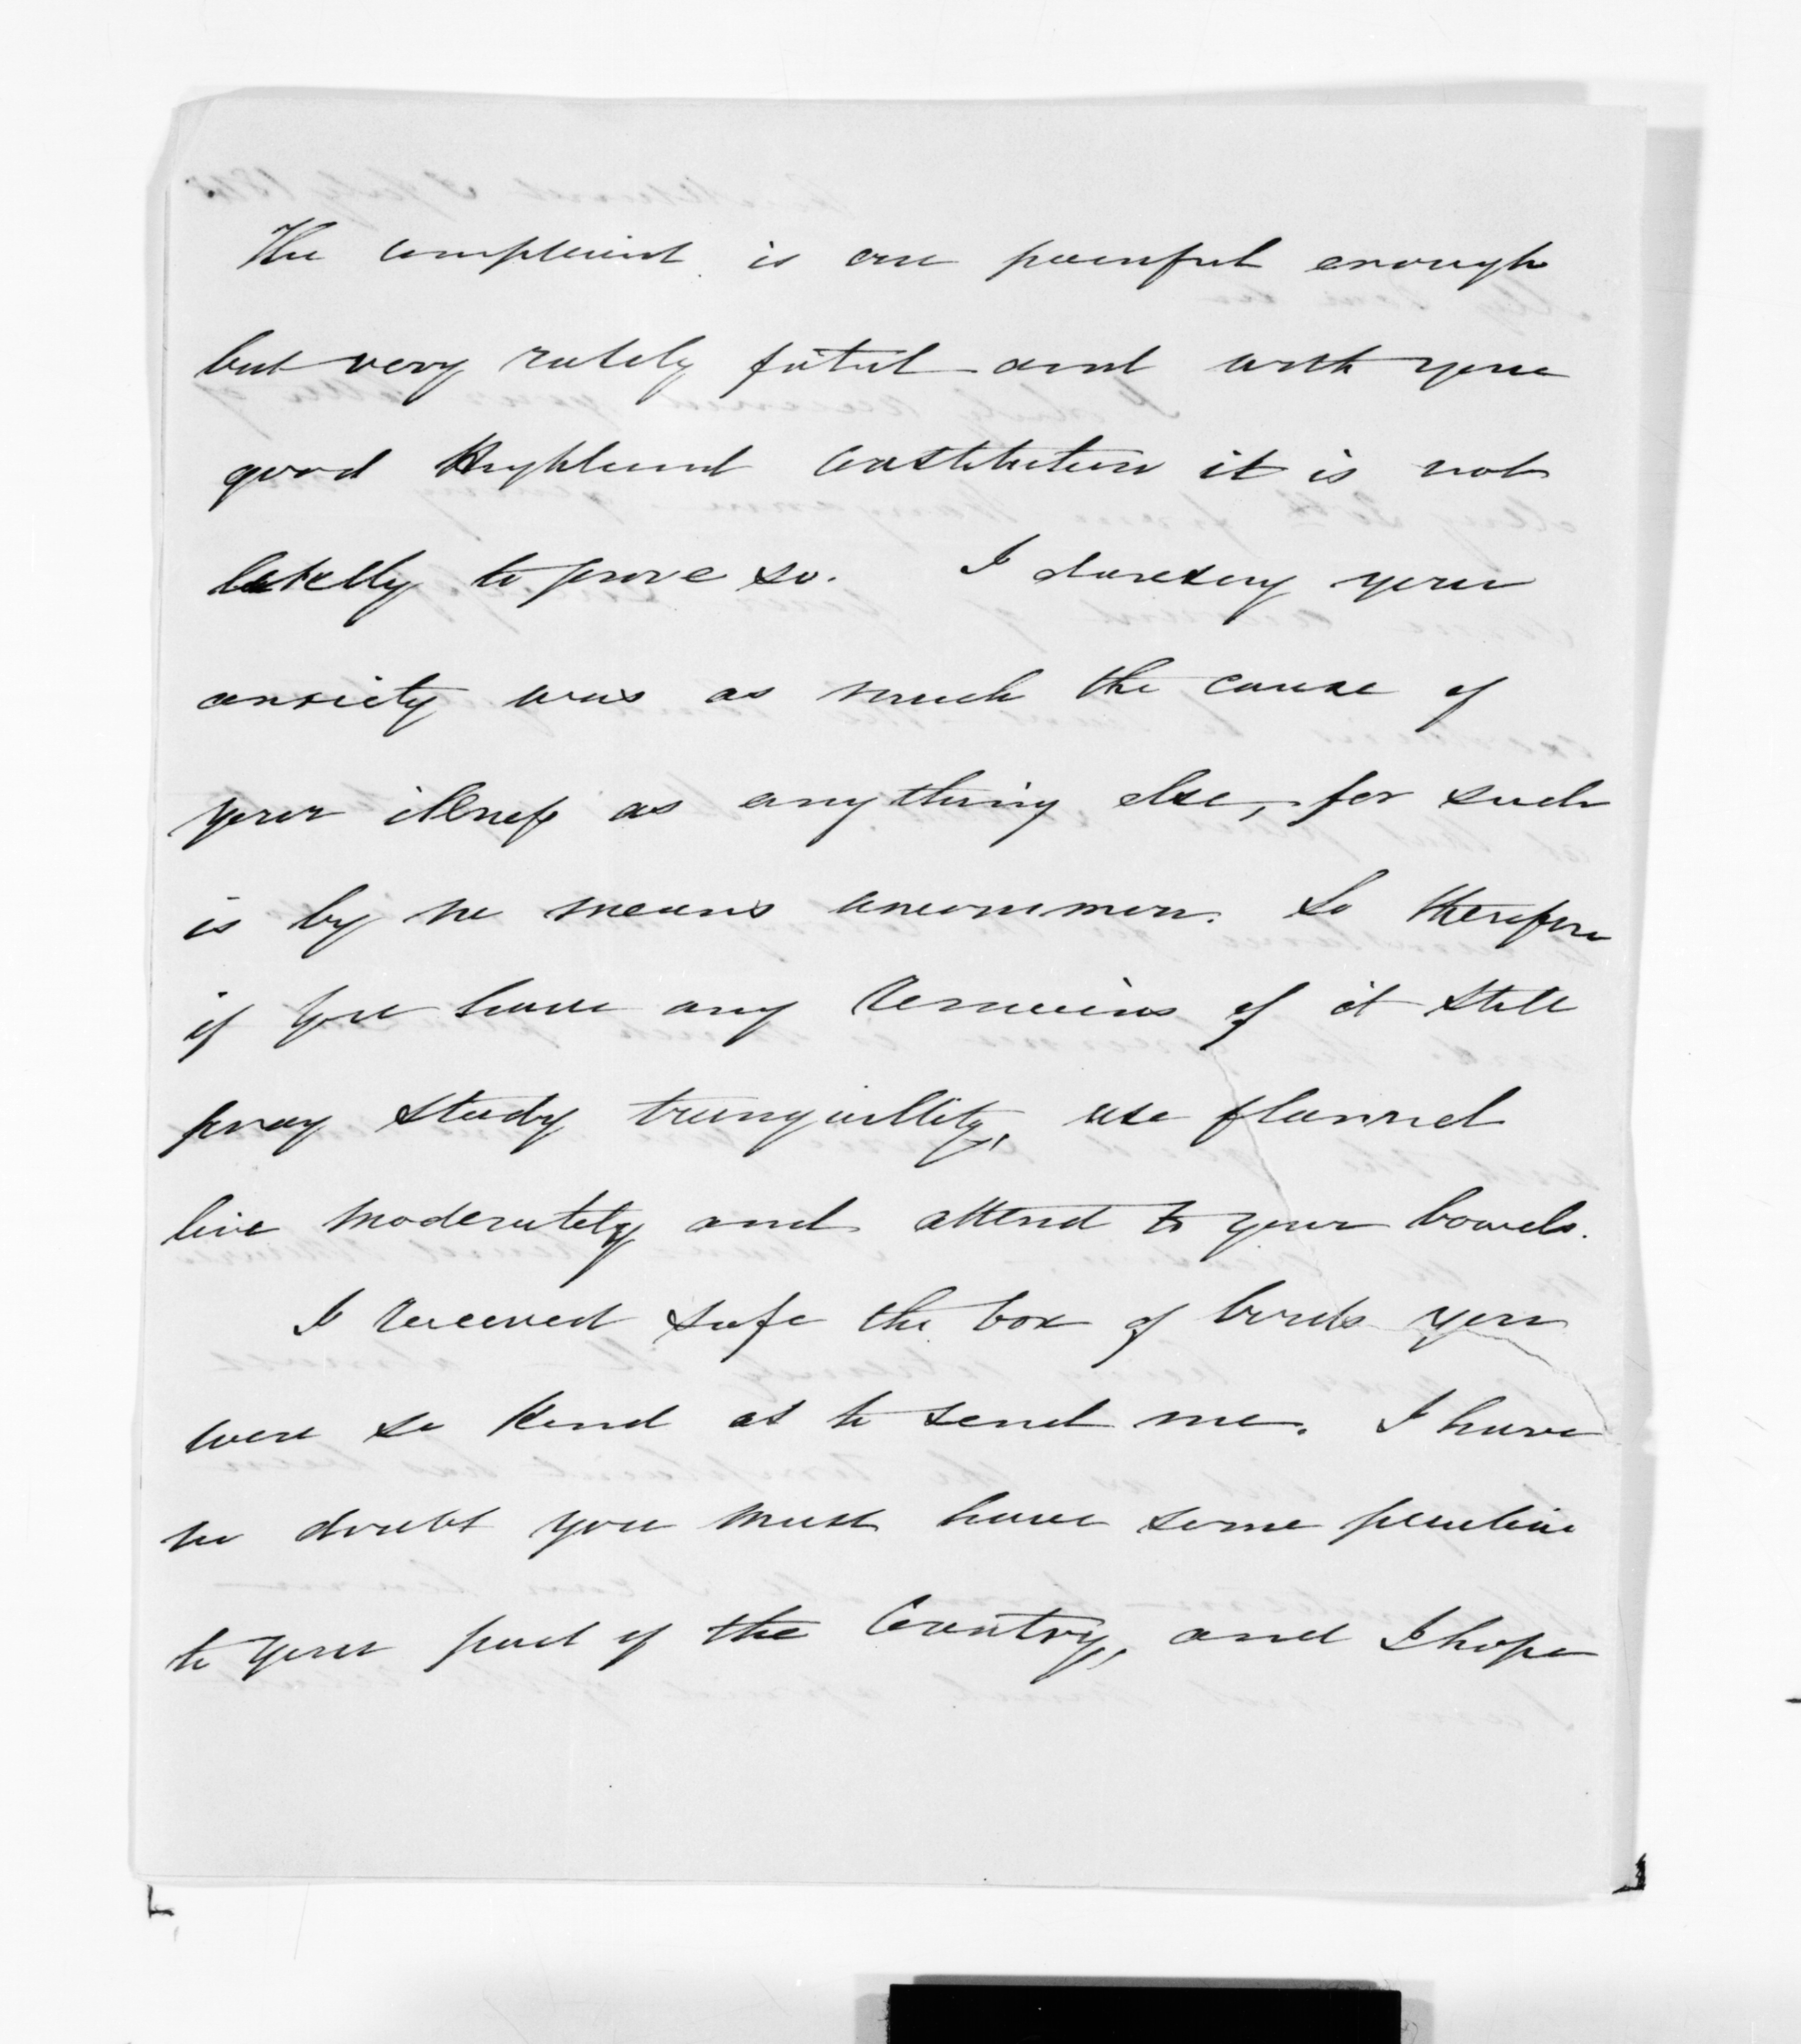 The complaint is one painful enough
but very rarely fatal and with your
good Highland Constitution it is not
likelly to prove so. I daresay your
anxiety was as much the cause of
your illness as anything else, for such
is by no means uncommon. So therefore
if you have any remains of it still
pray study tranquillity, use flannel
live moderately and attend to your bowels.
I received safe the box of birds you
were so kind as to send me. I have
no doubt you must have some peculiar
to your part of the Country, and I hope